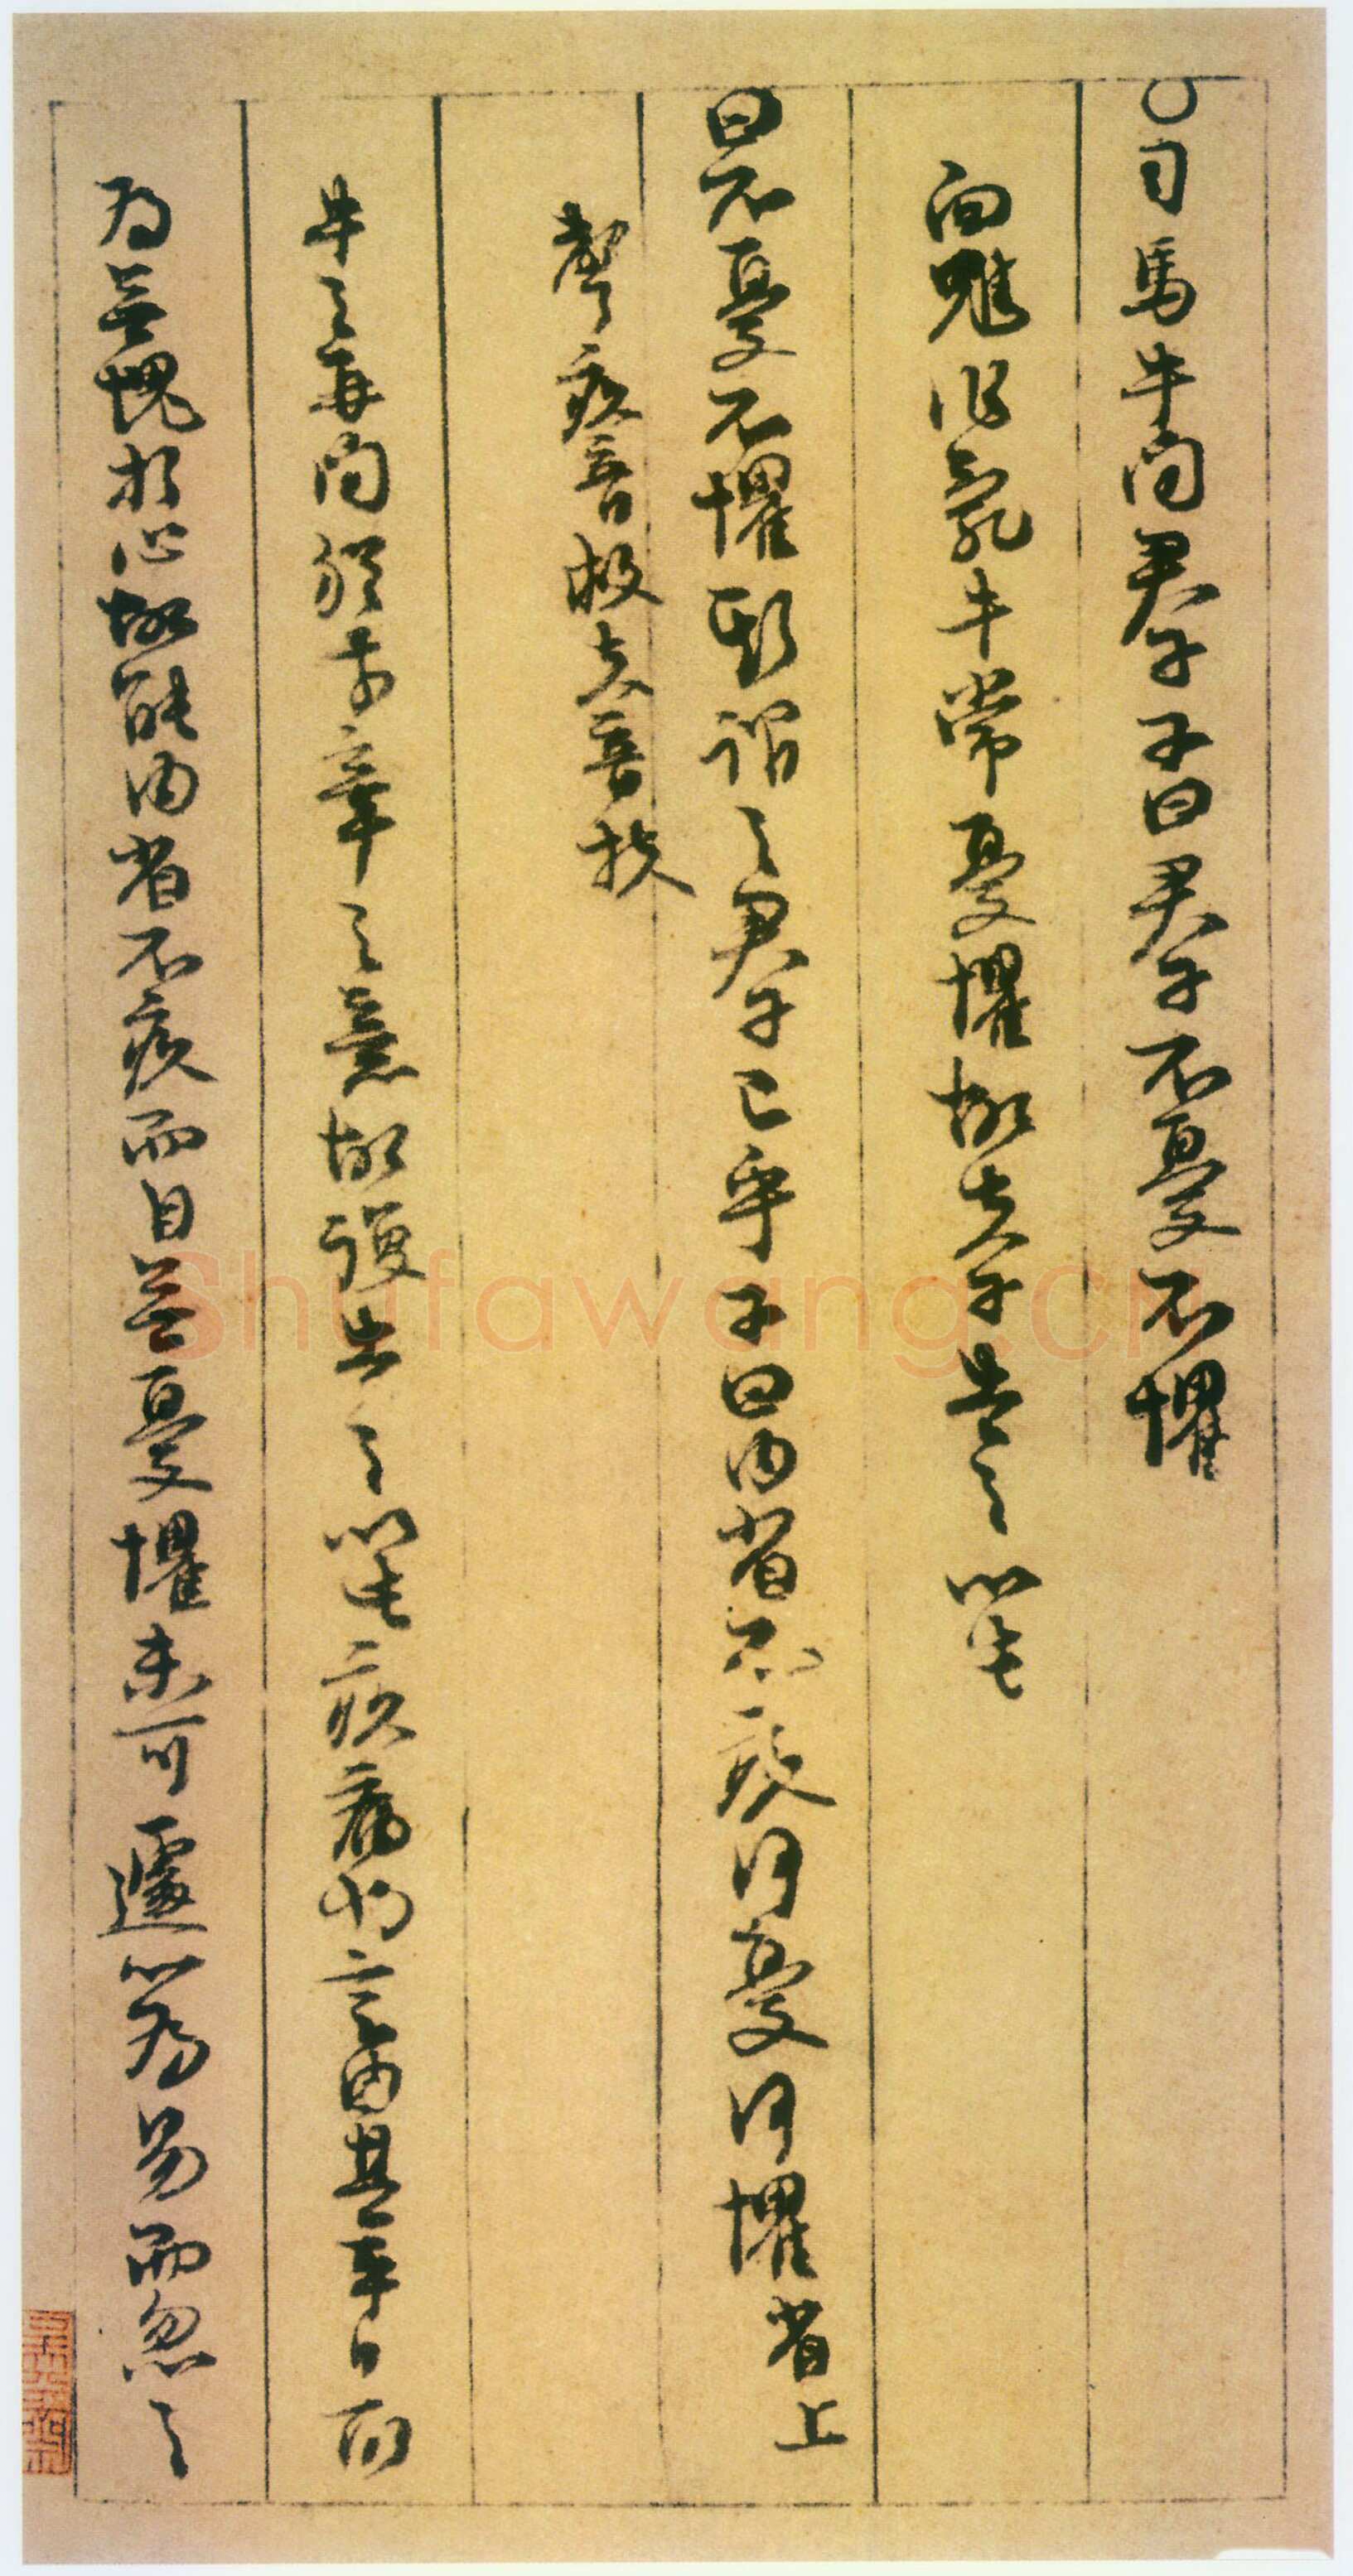 ○司馬牛問君子子曰君子不憂不懼
向魋作亂牛常憂懼故夫子告之以此
曰不憂不懼斯謂之君子已乎子曰內省不疚何憂何懼省上
聲疚音救夫音扶
牛之再問猶前章之意故復告之以此疚病也言由其平日所
為無愧於心故能內省不疚而自無憂懼未可遽以為易而忽之
Shufawang.cn